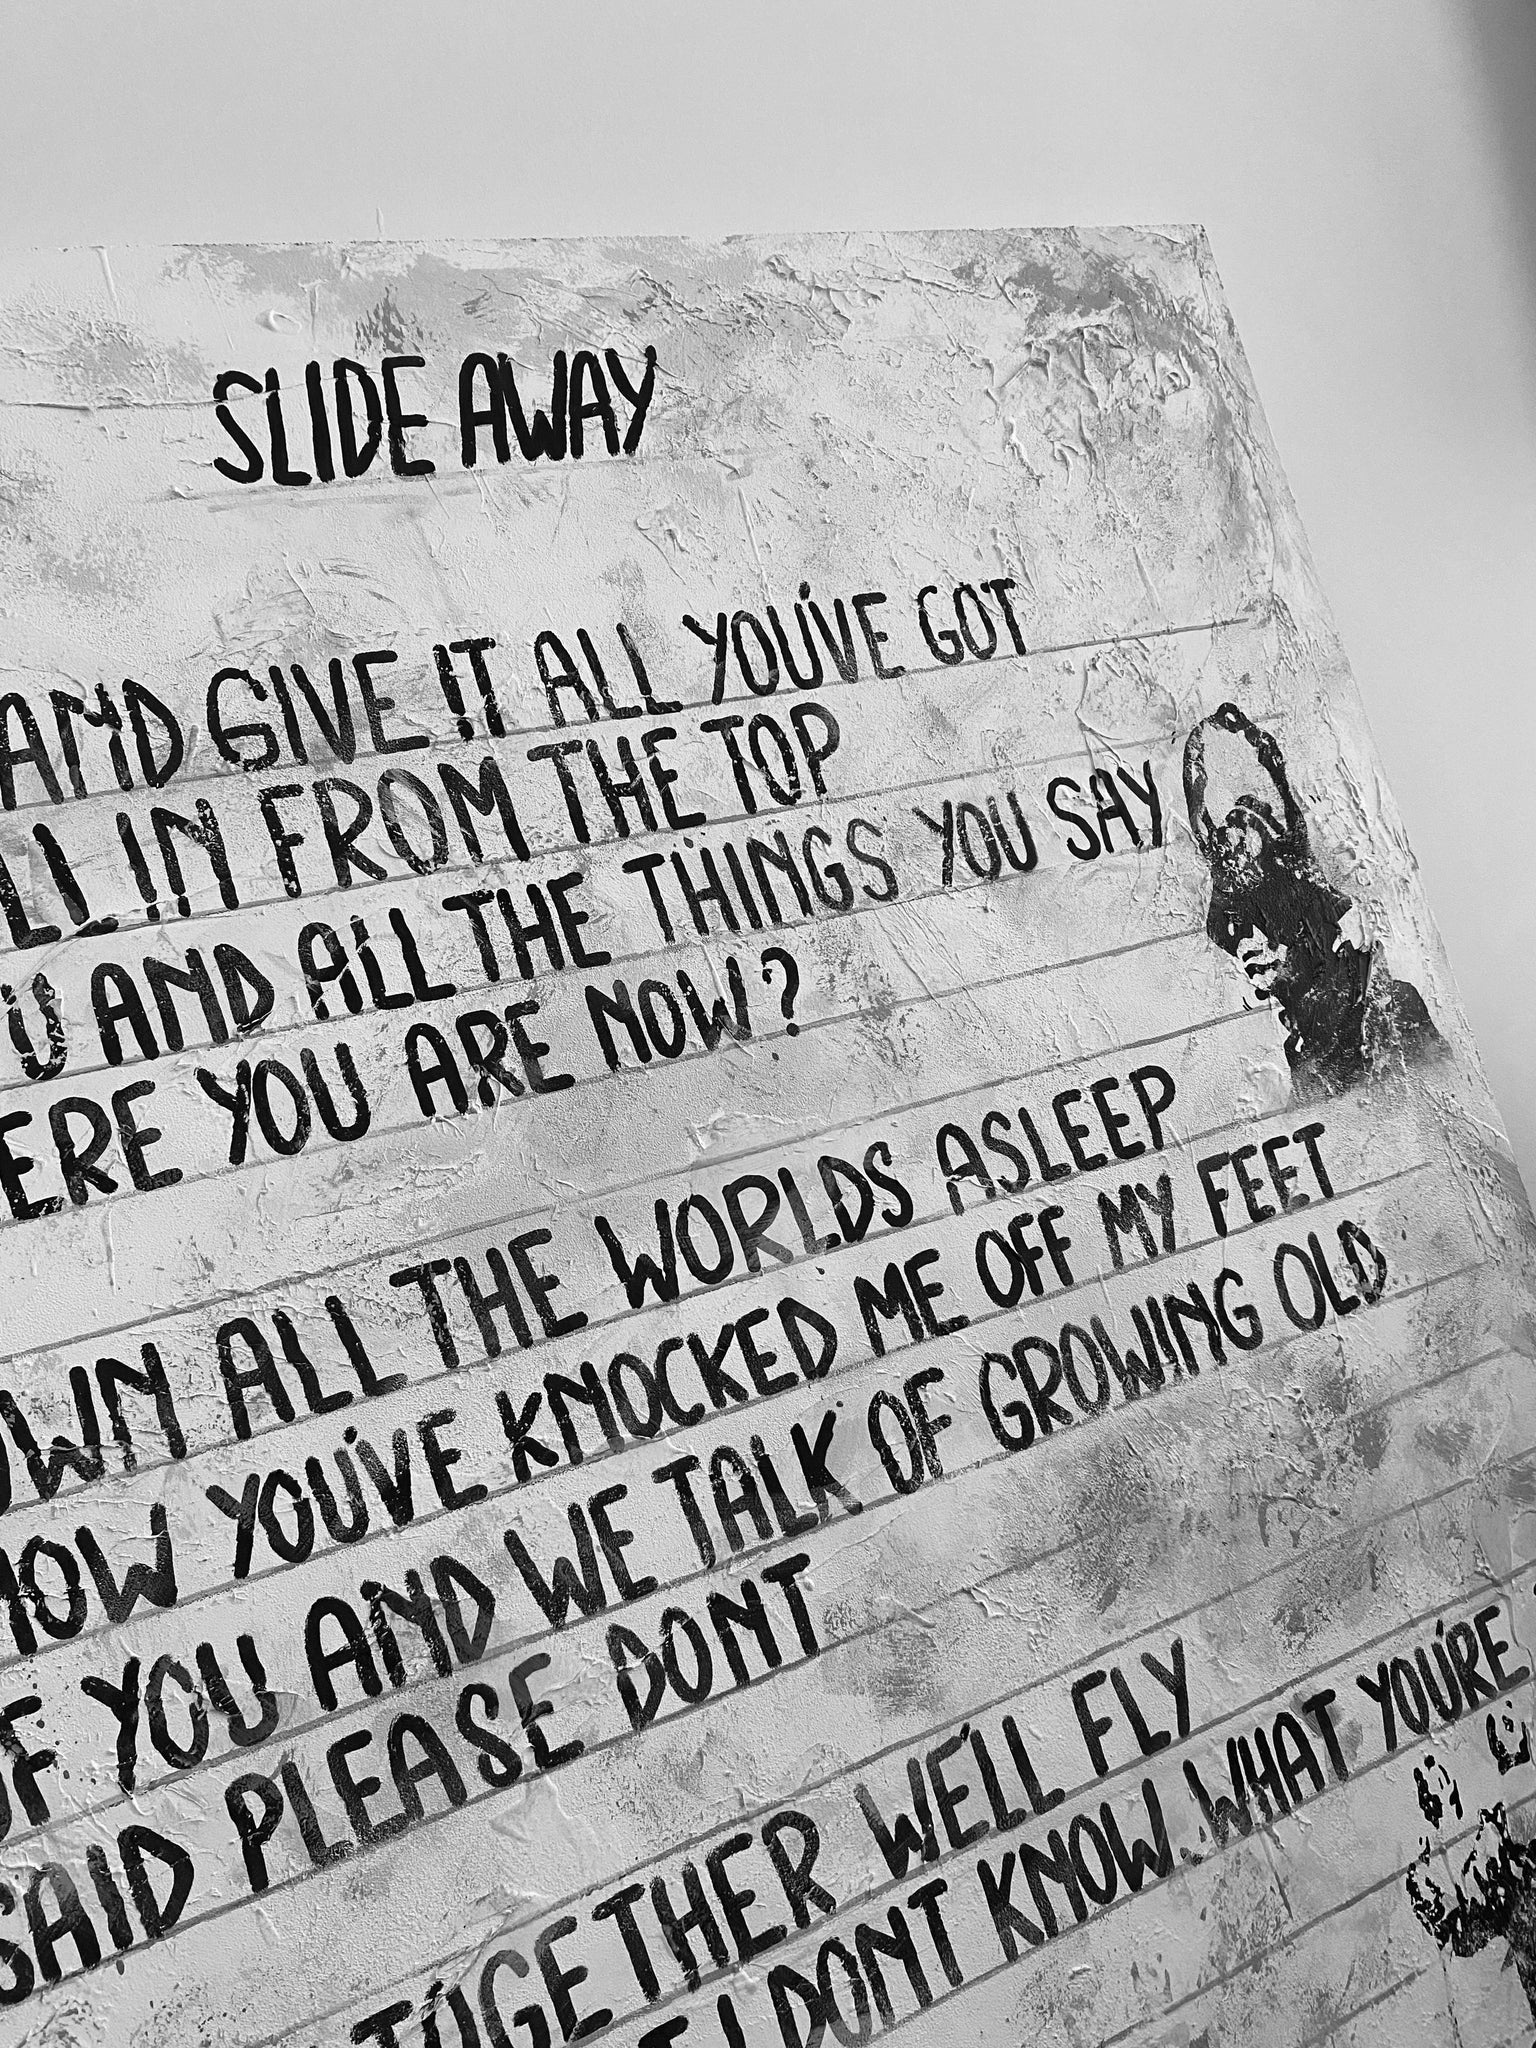 SLIDE AWAY
AND GIVE IT ALL YOU'VE GOT
IN FROM THE TOP
AND ALL THE THINGS YOU SAY
YOU ARE NOW?
ALL THE WORLDS ASLEEP
YOU'VE KNOCKED ME OFF MY FEET
YOU AND WE TALK OF GROWING OLD
SAID PLEASE DONT
TOGETHER WE'LL FLY
I DONT KNOW, WHAT YOU'RE